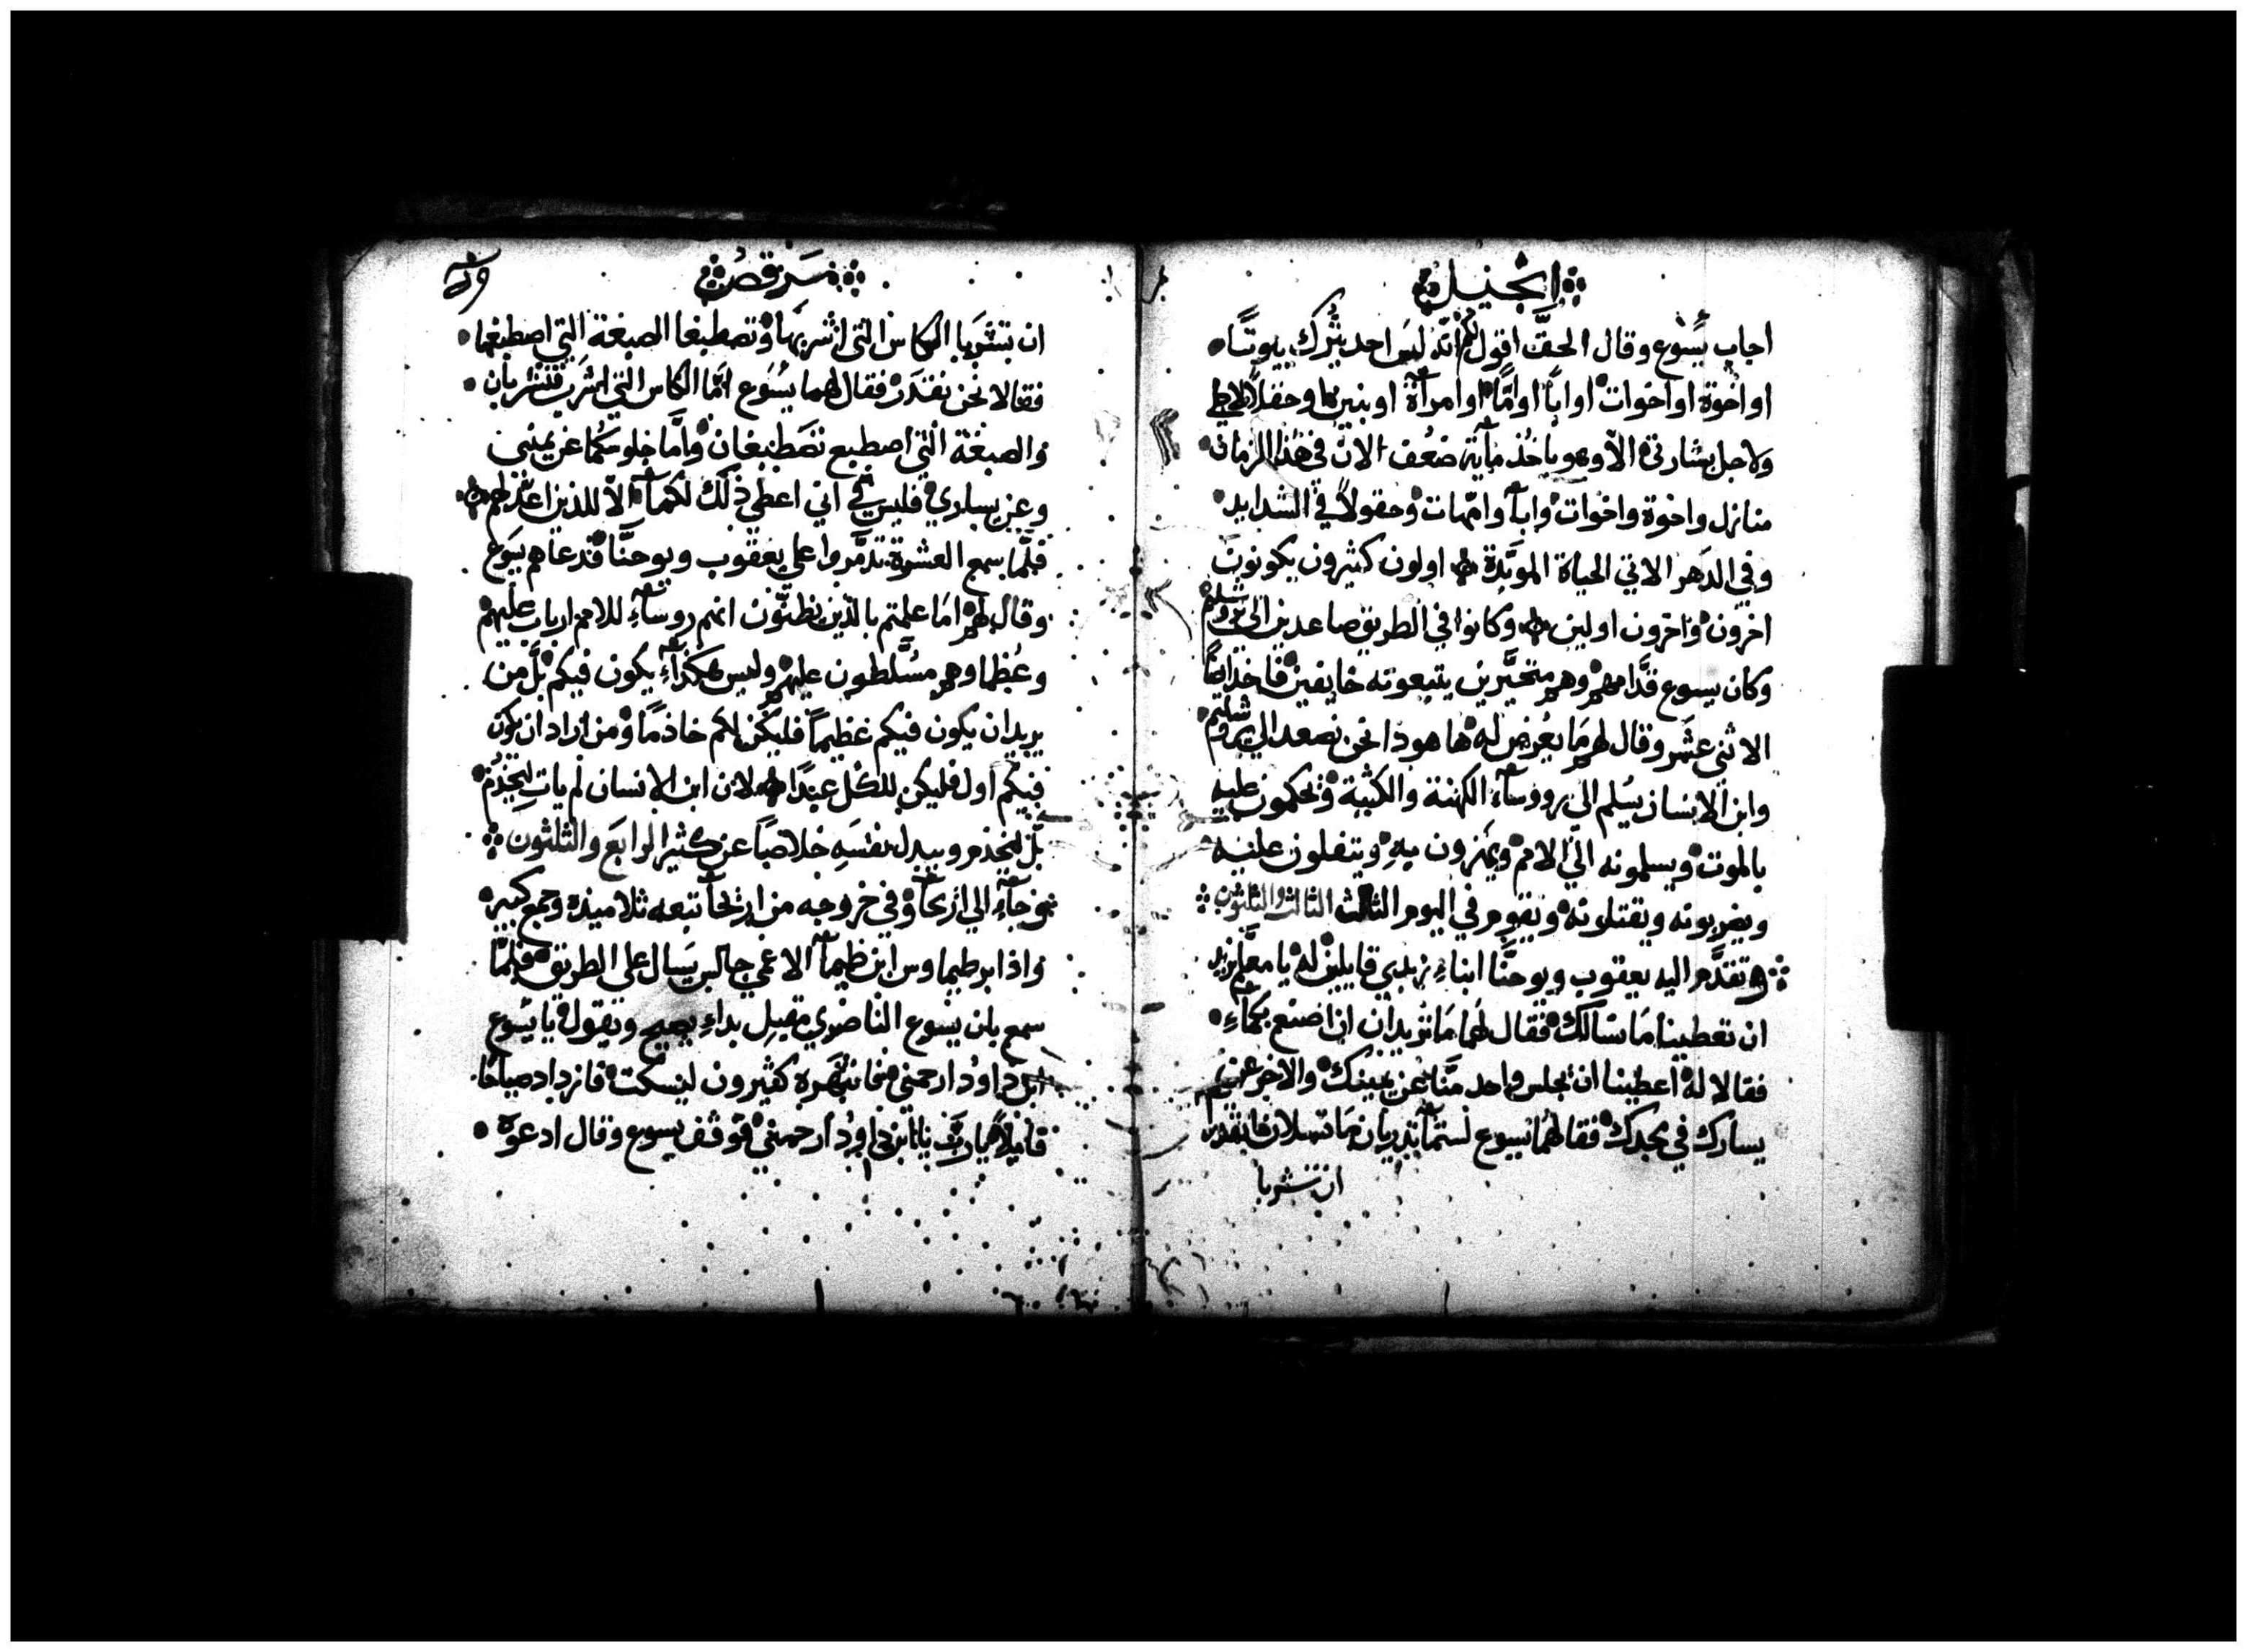 انجيل
اجاب يسوع وقال الحق اقول لكم انه ليس احد يترك بيوتًا
او اخوة او اخوات او ابًا او امًا او امرأة او بنين او حقلًا لاجلي
ولاجل بشارتي الا وهو ياخذ ماية ضعف الان في هذا الزمان
منازل واخوة واخوات وابآ وامهات وحقولًا في الشدايد
وفي الدهر الاتي الحياة الموبدة اولون كثيرون يكونون
اخرون واخرون اولين وكانوا في الطريق صاعدين الي يروشليم
وكان يسوع قدامهم وهم متحيرين يتبعونه خايفين فاخذ ايضًا
الاثني عشر وقال لهم ما يعرض له ها هوذا نحن نصعد الي يروشليم
وابن الانسان يسلم الي رووساء الكهنة والكتبة ويحكمون عليه
بالموت ويسلمونه الي الامم ويهزون به ويتفلون عليه
ويضربونه ويقتلونه ويقوم في اليوم الثالث الثالث والثلثون
وتقدم اليه يعقوب ويوحنا ابناء زبدي قايلين له يا معلم نريد
ان تعطينا ما نسالك فقال لهما ما تريدان ان اصنع بكماء
فقالا له اعطينا ان يجلس واحد منا عن يمينك والاخر عن
يسارك في مجدك فقال لهما يسوع لستما تدريان ما تسلان هل تقدر
ان تشربا
مرقص
ان تشربا الكاس التي اشربها وتصطبغا الصبغة التي اصطبغها
فقالا نحن نقدر فقال لهما يسوع اما الكاس التي اشرب فتشربان
والصبغة التي اصطبع تصطبغان واما جلوسكما عن يميني
وعن يساري فليس لي اني اعطي ذلك لكما الا للذين اعد لهم
فلما سمع العشرة تذمروا علي يعقوب ويوحنا فدعاهم يسوع
وقال لهم اما علمتم بالذين يظنون انهم روساء للامم ارباب عليهم
وعظماوهم مسلطون عليهم وليس هكذاء يكون فيكم بل من
يريد ان يكون فيكم عظيمًا فليكن لكم خادمًا ومن اراد ان يكون
فيكم اول فليكن للكل عبدًا لان ابن الانسان لم يات ليخدم
بل ليخدم ويبدل نفسه خلاصًا عن كثير الرابع والثلثون
ثم جاء الي اريحا وفي خروجه من اريحا تبعه تلاميذه وجمع كبير
واذا ابن طيماوس ابن طيما الاعمي جالس يسال علي الطريق فلما
سمع بان يسوع الناصري مقبل بداء يصيح ويقول يا يسوع
ابن داوود ارحمني فانتهره كثيرون ليسكت فازداد صياحًا
قايلًا يا رب يا ابن داوود ارحمني فوقف يسوع وقال ادعوه